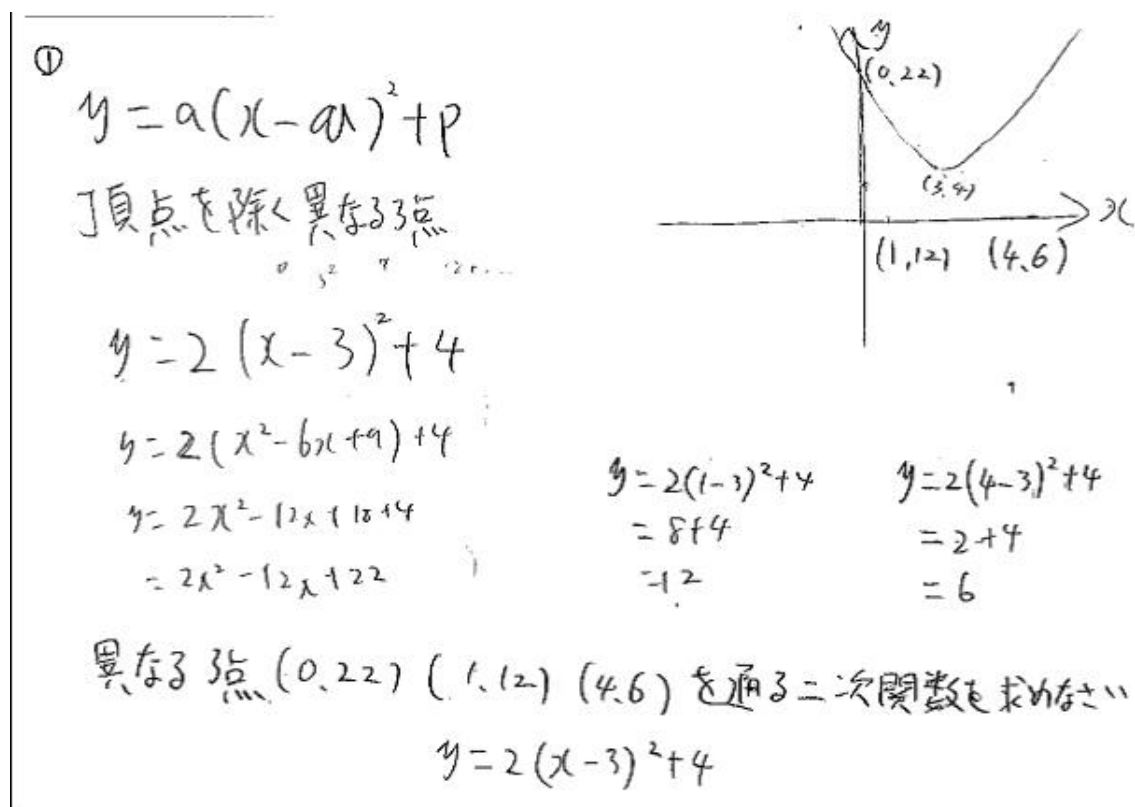 ①
y=a(x-q)²+p
頂点を除く異なる3点
y=2(x-3)²+4
y=2(x²-6x+9)+4
y=2x²-12x+18+4
=2x²-12x+22
y
(0,22)
(3,4)
x
(1,12) (4,6)
y=2(1-3)²+4
=8+4
=12
y=2(4-3)²+4
=2+4
=6
異なる3点(0,22)(1,12)(4,6)を通る二次関数を求めなさい
y=2(x-3)²+4